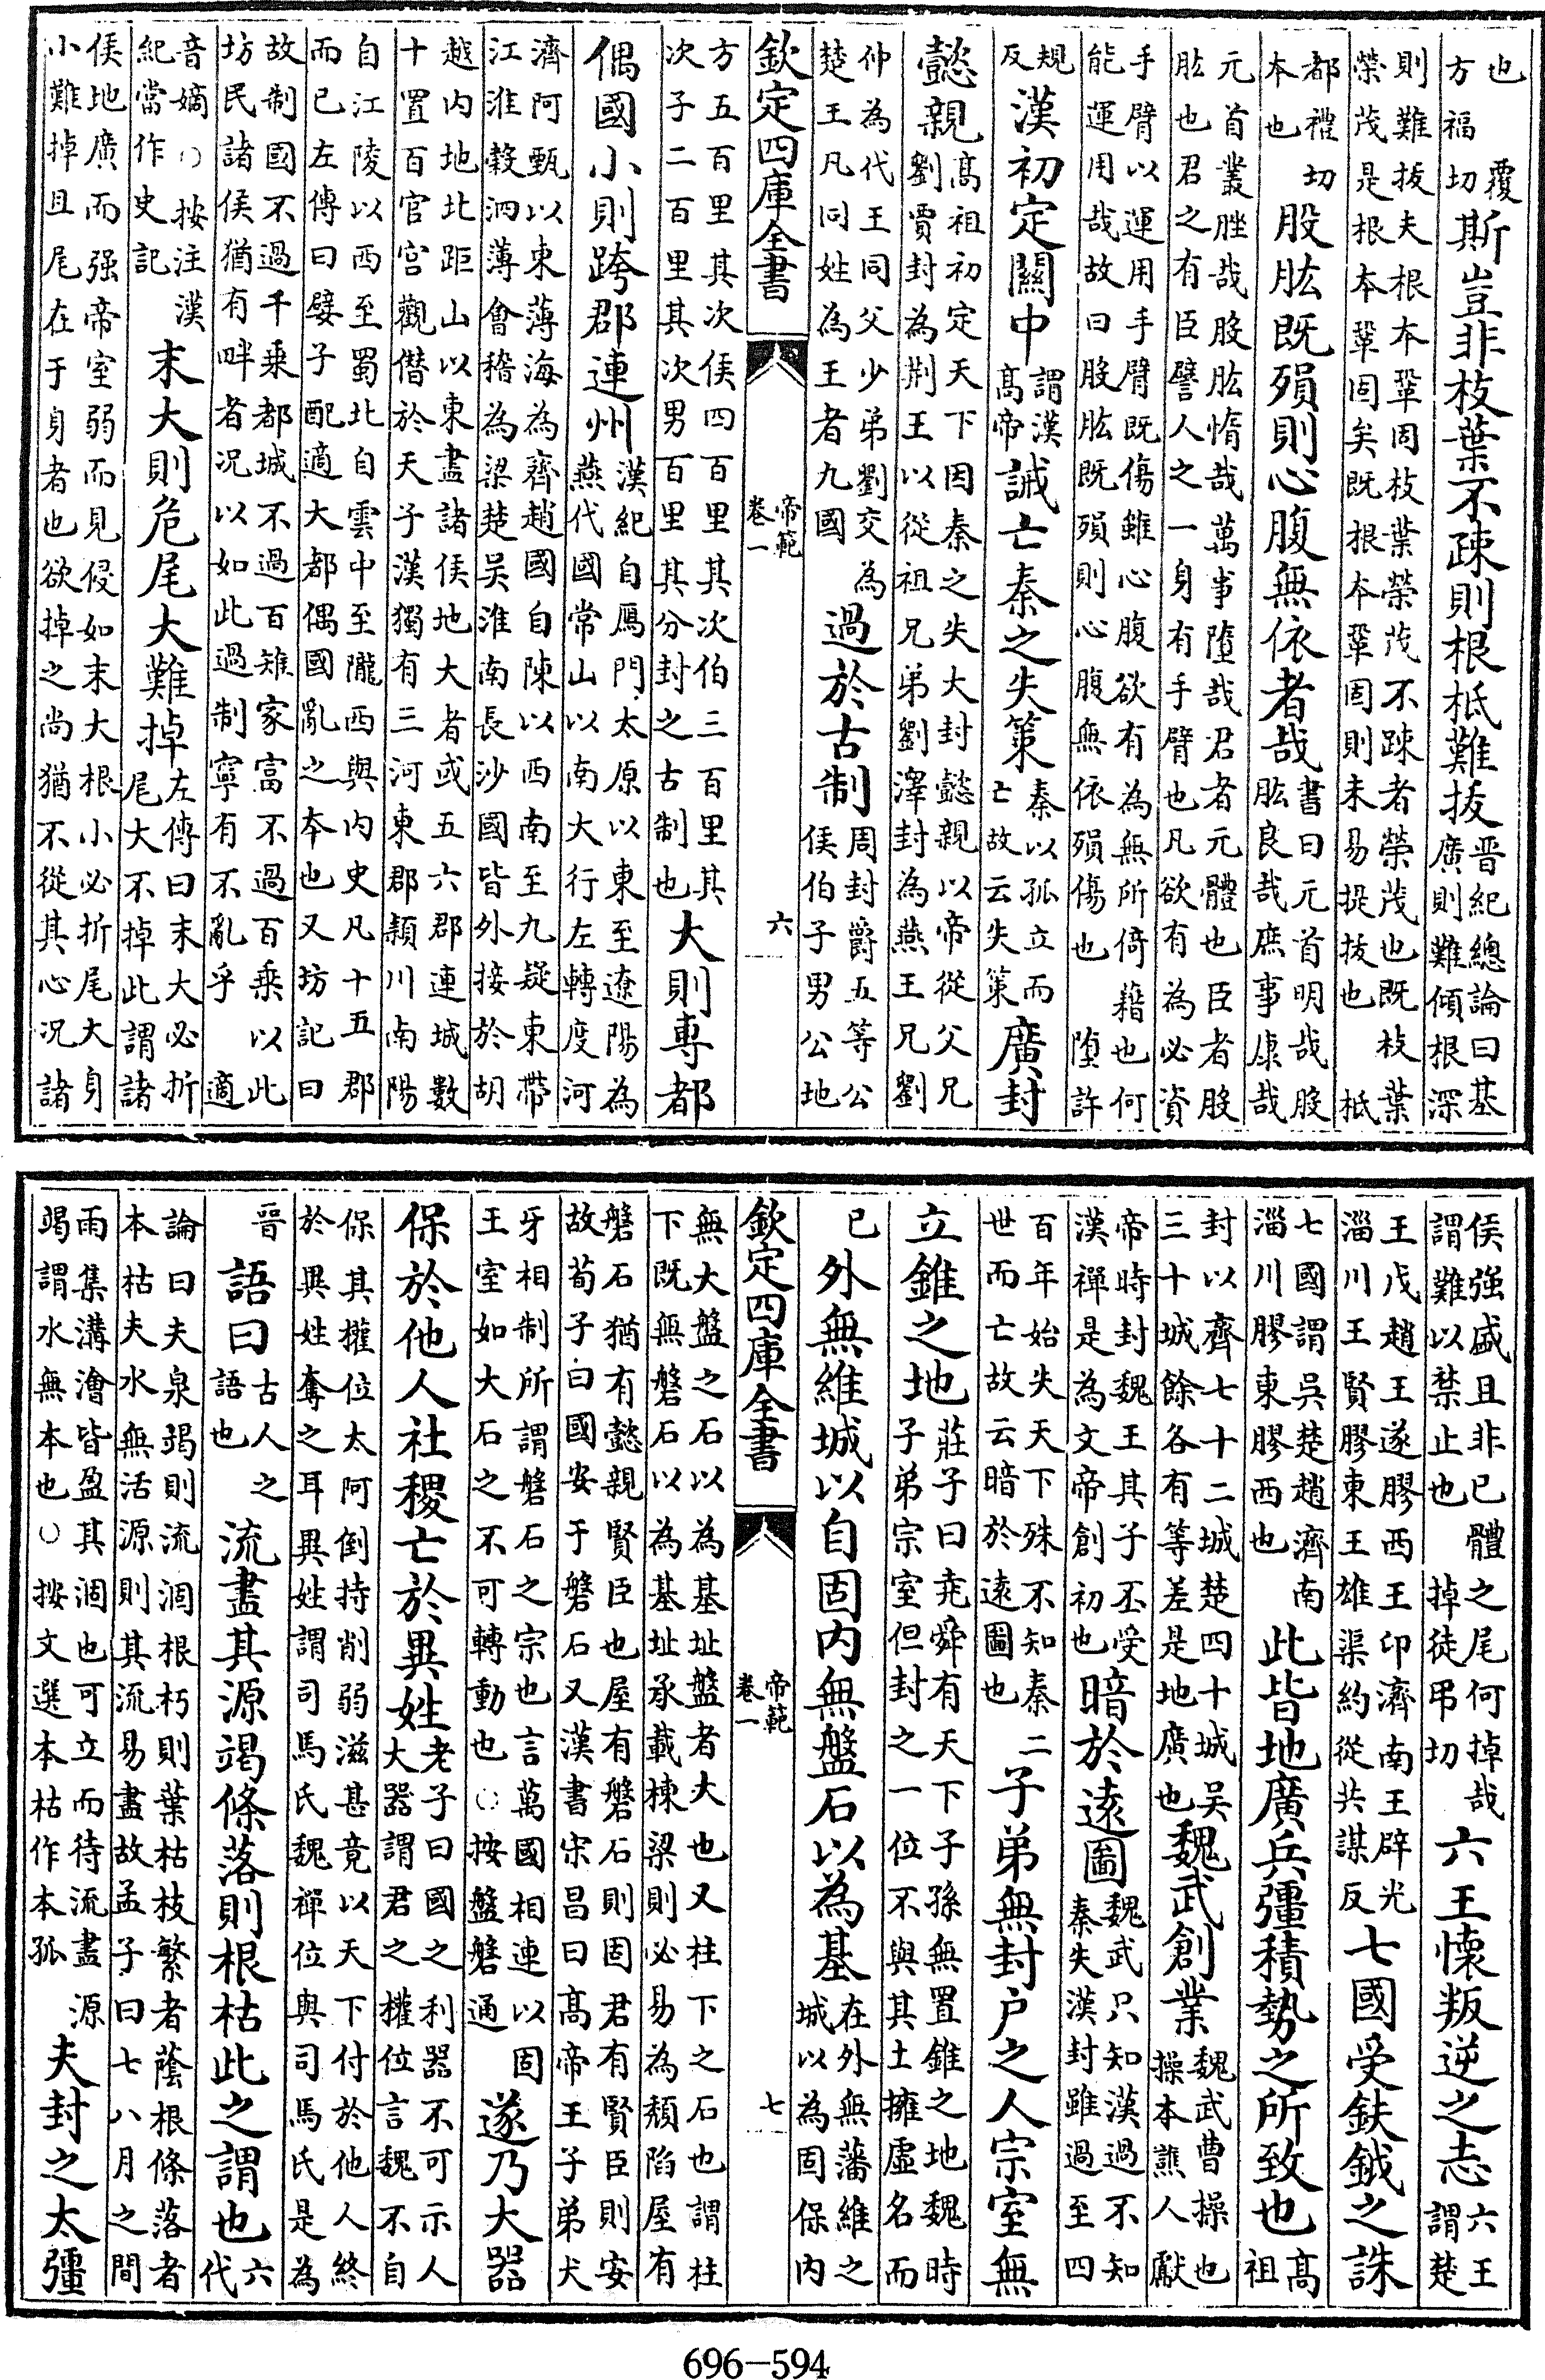 也覆方福切斯豈非枝葉不疎則根柢難拔晋紀總論曰基廣則難傾根深
則難拔夫根本鞏固枝葉榮茂不踈者榮茂也既枝葉榮茂是根本鞏固矣既根本鞏固則未易捉拔也柢
都禮切本也股肱既殞則心腹無依者哉書曰元首明哉股肱良哉庶事康哉
元首叢脞哉股肱惰哉萬事墮哉君者元體也臣者股肱也君之有臣譬人之一身有手臂也凡欲有為必資
手臂以運用手臂既傷雖心腹欲有為無所倚藉也何能運用哉故曰股肱既殞則心腹無依殞傷也墮許
規反漢初定關中謂漢高帝誡亡秦之失策秦以孤立而亡故云失策廣封
懿親高祖初定天下因秦之失大封懿親以帝從父兄劉賈封為荆王以從祖兄弟劉澤封為燕王兄劉
仲為代王同父少弟劉交為楚王凡同姓為王者九國過於古制周封爵五等公侯伯子男公地
欽定四庫全書 帝範卷一 六
方五百里其次侯四百里其次伯三百里其次子二百里其次男百里其分封之古制也大則專都
偶國小則跨郡連州漢紀自鴈門太原以東至遼陽為燕代國常山以南大行左轉度河
濟阿甄以東薄海為齊趙國自陳以西南至九疑東帶江淮榖泗薄會稽為梁楚吳淮南長沙國皆外接於胡
越内地北距山以東盡諸侯地大者或五六郡連城數十置百官宫觀僭於天子漢獨有三河東郡潁川南陽
自江陵以西至蜀北自雲中至隴西與内史凡十五郡而已左傳曰嬖子配適大都偶國亂之本也又坊記曰
故制國不過千乘都城不過百雉家富不過百乘以此坊民諸侯猶有畔者况以如此過制寧有不亂乎適
音嫡○按注漢紀當作史記末大則危尾大難掉左傳曰末大必折尾大不掉此謂諸
侯地廣而强帝室弱而見侵如末大根小必折尾大身小難掉且尾在于身者也欲掉之尚猶不從其心况諸
侯强盛且非已體之尾何掉哉謂難以禁止也掉徒弔切六王懷叛逆之志六王謂楚
王戊趙王遂膠西王卬濟南王辟光淄川王賢膠東王雄渠約從共謀反七國受鈇鉞之誅
七國謂吳楚趙濟南淄川膠東膠西也此皆地廣兵彊積勢之所致也高祖
封以齊七十二城楚四十城吳三十城餘各有等差是地廣也魏武創業魏武曹操也操本譙人獻
帝時封魏王其子丕受漢禪是為文帝創初也暗於遠圖魏武只知漢過不知秦失漢封雖過至四
百年始失天下殊不知秦二世而亡故云暗於遠圖也子弟無封户之人宗室無
立錐之地莊子曰尭舜有天下子孫無置錐之地魏時子弟宗室但封之一位不與其土擁虚名而
已外無維城以自固内無盤石以為基在外無藩維之城以為固保内
欽定四庫全書 帝範卷一 七
無大盤之石以為基址盤者大也又柱下之石也謂柱下既無磐石以為基址承載棟梁則必易為頽陷屋有
磐石猶有懿親賢臣也屋有磐石則固君有賢臣則安故荀子曰國安于磐石又漢書宋昌曰高帝王子弟犬
牙相制所謂磐石之宗也言萬國相連以固王室如大石之不可轉動也○按盤磐通遂乃大器
保於他人社稷亡於異姓老子曰國之利器不可示人大器謂君之權位言魏不自
保其權位太阿倒持削弱滋甚竟以天下付於他人終於異姓奪之耳異姓謂司馬氏魏禪位與司馬氏是為
晋語曰古人之語也流盡其源竭條落則根枯此之謂也六代
論曰夫泉竭則流涸根朽則葉枯枝繁者蔭根條落者本枯夫水無活源則其流易盡故孟子曰七八月之間
雨集溝澮皆盈其涸也可立而待流盡源竭謂水無本也○按文選本枯作本孤夫封之太彊
696-594